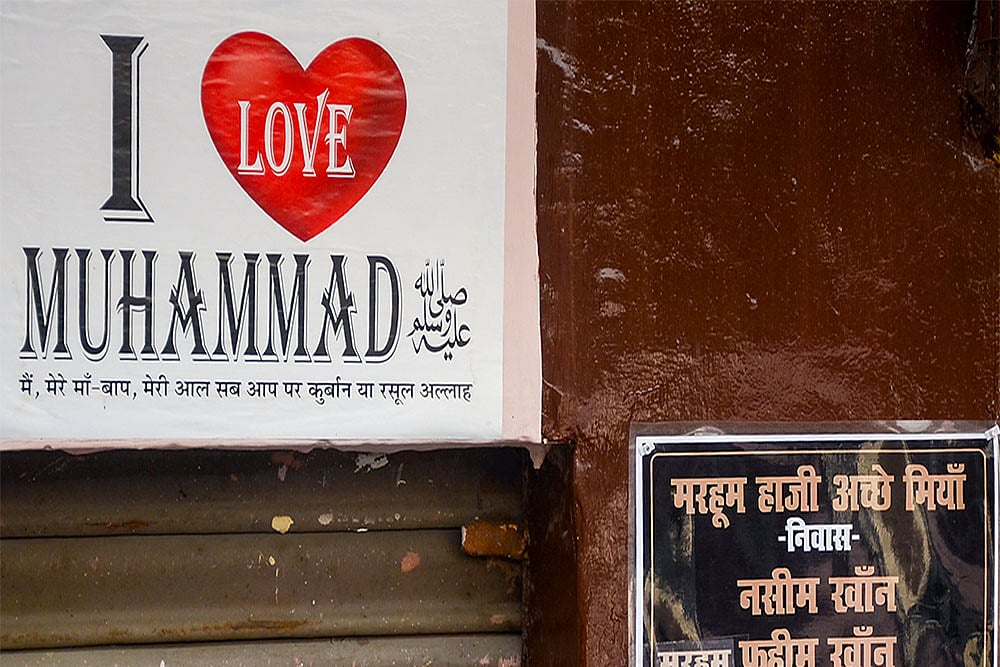 I LOVE
MUHAMMAD صلى الله عليه وسلم
मैं, मेरे माँ-बाप, मेरी आल सब आप पर कुर्बान या रसूल अल्लाह
मरहूम हाजी अच्छे मियाँ
-निवास-
नसीम खाँन
फहीम खाँन
मरहूम